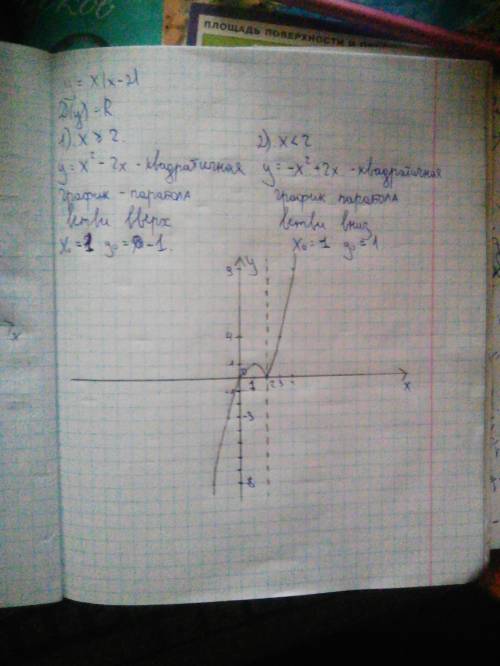 ПЛОЩАДЬ ПОВЕРХНОСТИ И
y = x|x-2|
D(y) = R
1). x ≥ 2.
y = x² - 2x - квадратичная
график - парабола
ветви вверх
x₀ = 1 y₀ = -1.
2). x < 2
y = -x² + 2x - квадратичная
график парабола
ветви вниз
x₀ = 1 y₀ = 1
y
4
1
0
1
2
3
x
-1
-3
x